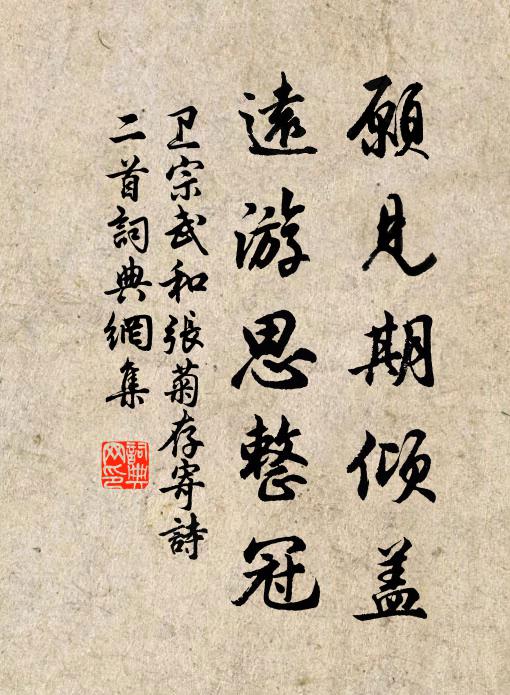 願見期傾盖
遠游思整冠
卫宗武和張菊存寄詩
二首詞典網集
詞典网印